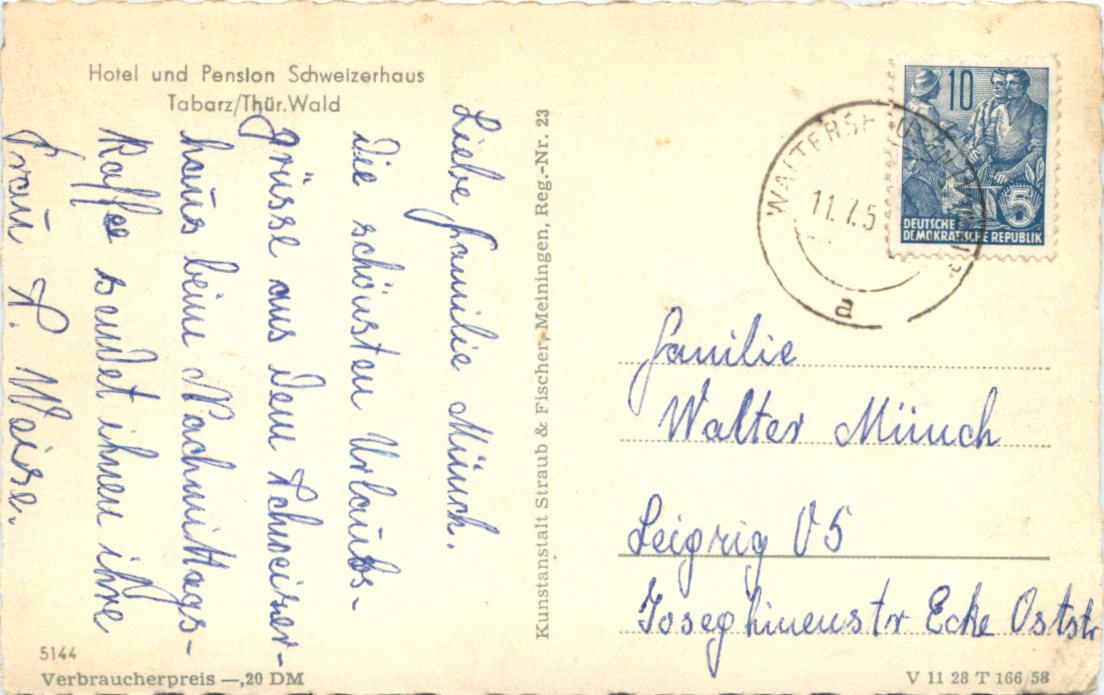 Hotel und Pension Schweizerhaus
Tabarz/Thür.Wald
Liebe Familie Münch.
Die schönsten Urlaubs-
grüsse aus dem Schweizer-
haus beim Nachmittags-
Kaffee sendet ihnen ihre
Frau A. Weise.
Kunstanstalt Straub & Fischer, Meiningen, Reg.-Nr. 23
10
5
DEUTSCHE
DEMOKRATISCHE REPUBLIK
11.7.5
a
Familie
Walter Münch
Leipzig O5
Josephinenstr Ecke Oststr
5144
Verbraucherpreis —,20 DM
V 11 28 T 166/58